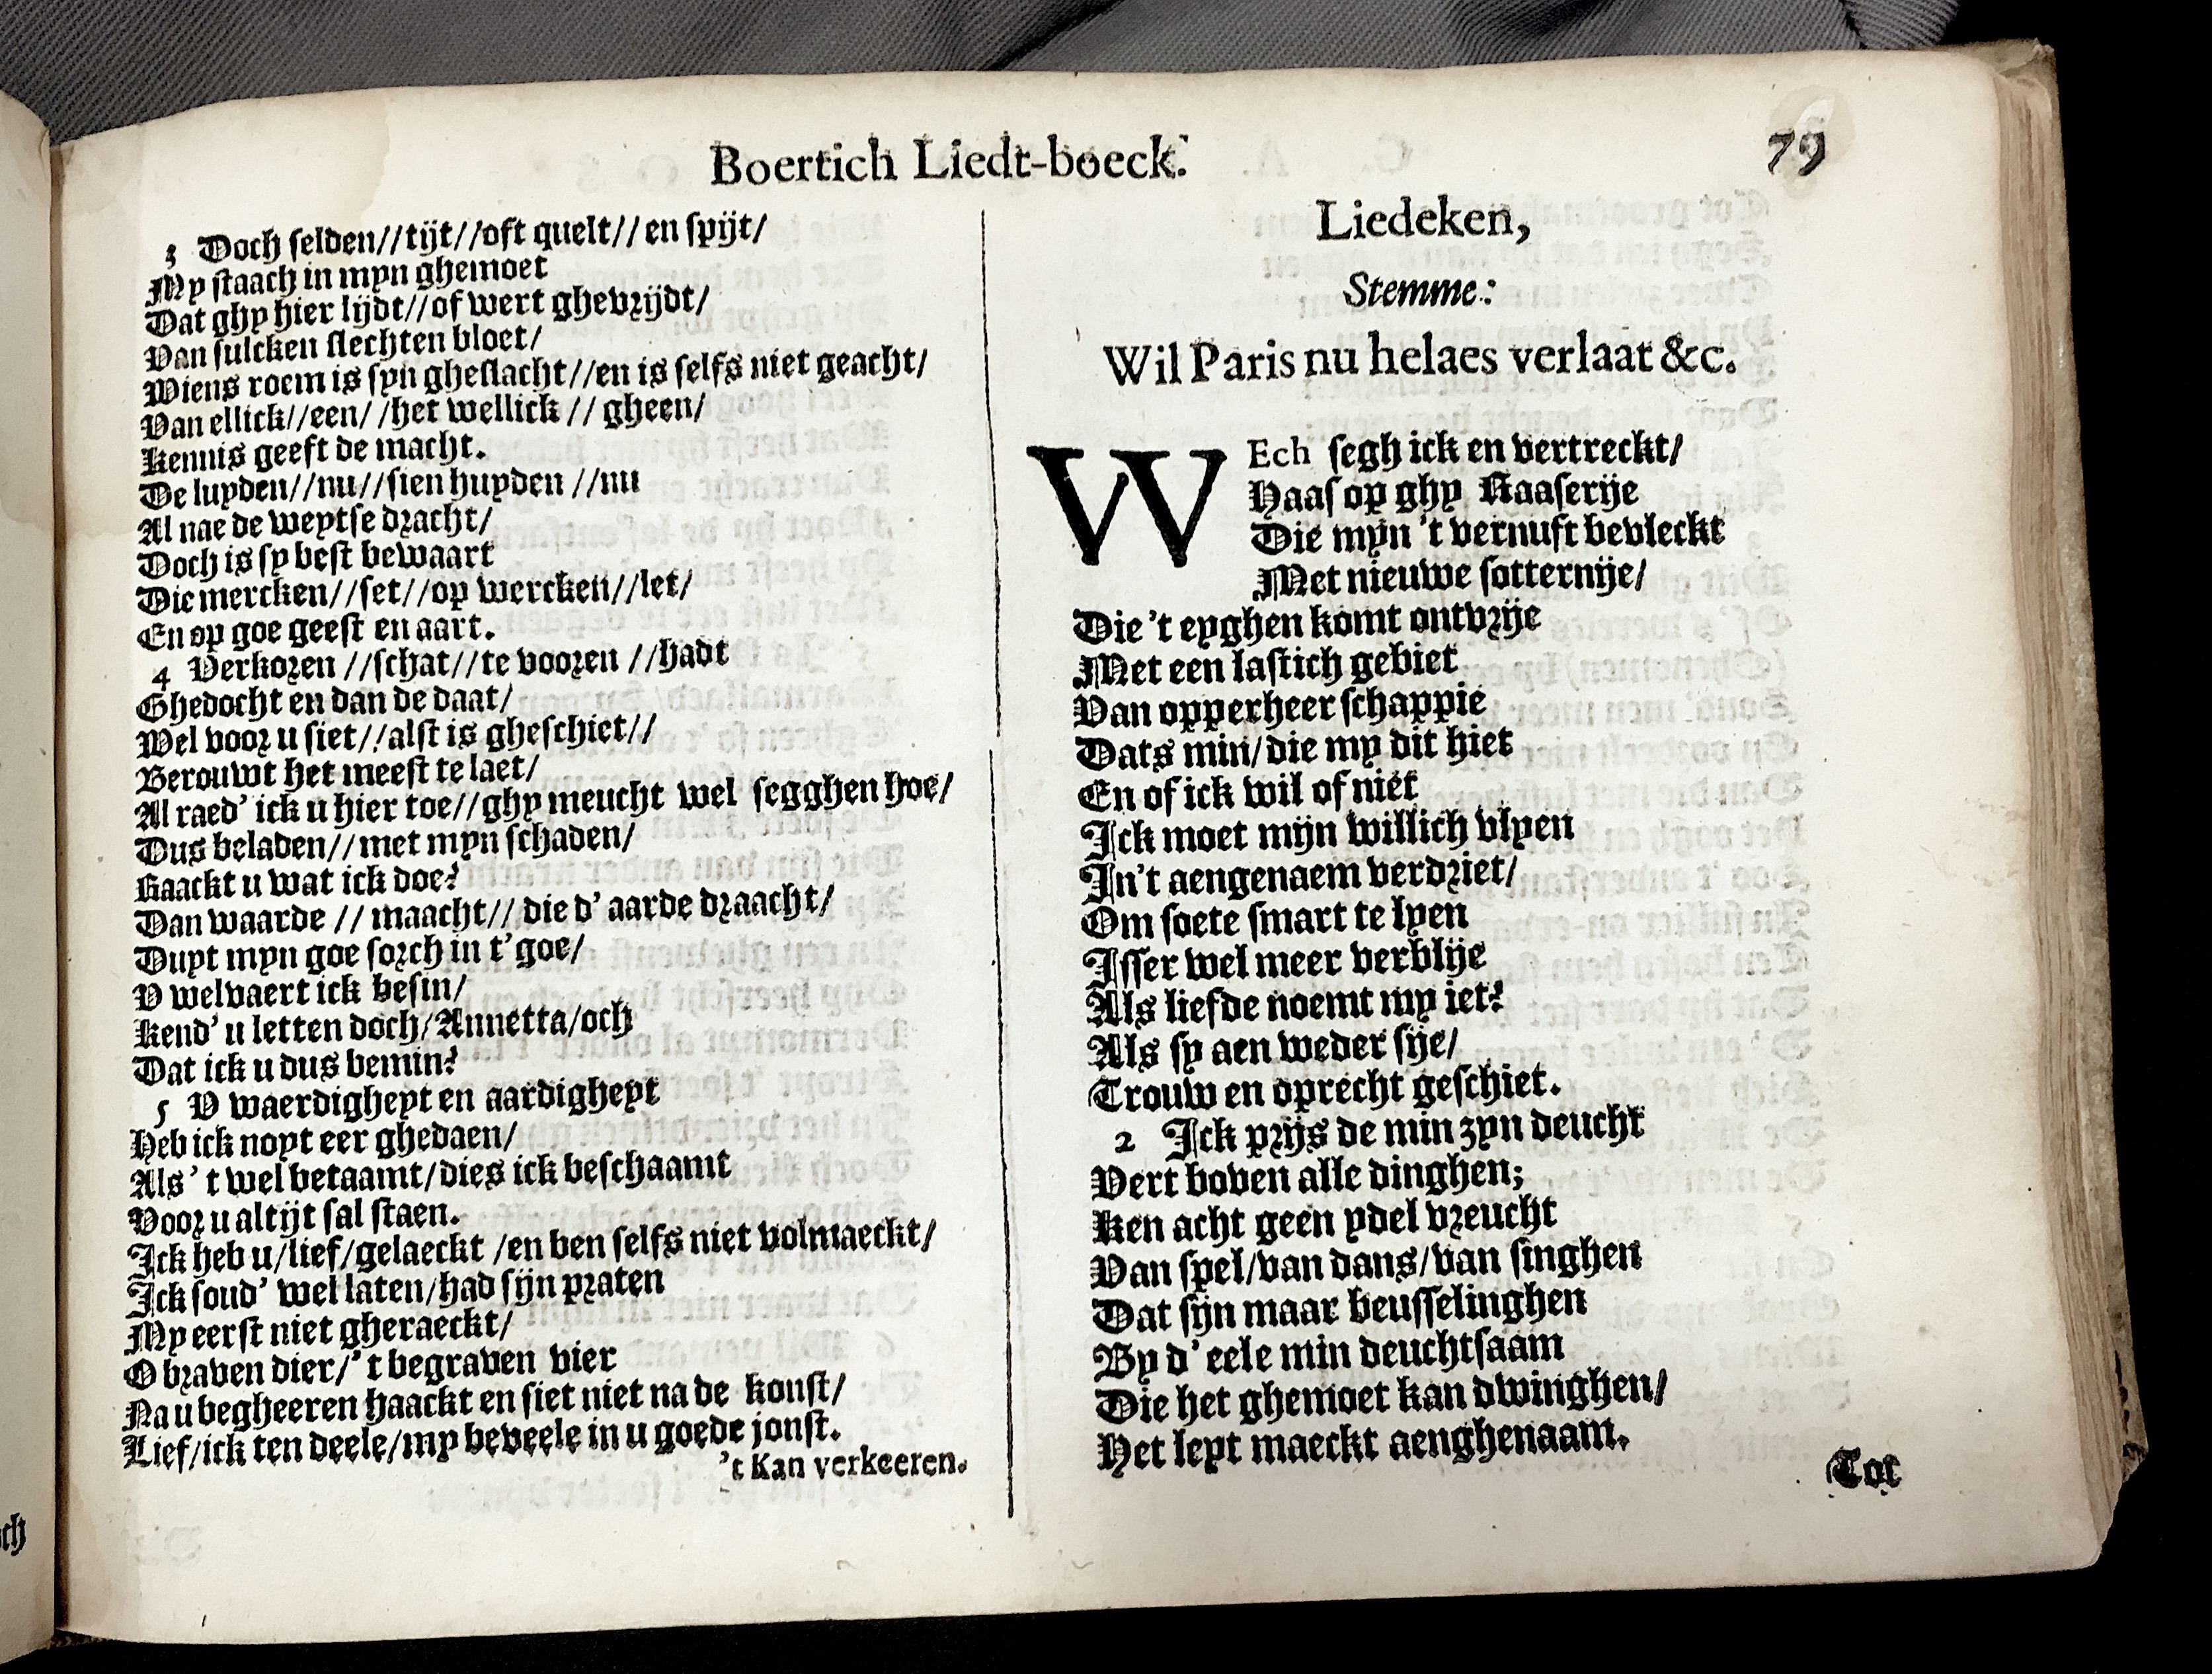 Boertich Liedt-boeck.
79
3 Doch selden//tijt//oft quelt//en spijt/
My staach in myn ghemoet
Dat ghy hier lijdt//of wert ghevrijdt/
Van sulcken slechten bloet/
Wiens roem is syn gheslacht//en is selfs niet geacht/
Van ellick//een//het wellick//gheen/
Kennis geeft de macht.
De luyden//nu//sien huyden//nu
Al nae de weytse dracht/
Doch is sy best bewaart
Die mercken//set//op wercken//let/
En op goe geest en aart.
4 Verkoren//schat//te vooren//hadt
Ghedocht en dan de daat/
Wel voor u siet//alst is gheschiet//
Berouwt het meest te laet/
Al raed' ick u hier toe//ghy meucht wel segghen hoe/
Dus beladen//met myn schaden/
Raackt u wat ick doe?
Dan waarde//maacht//die d'aarde draacht/
Duyt myn goe sorch in t'goe/
V welvaert ick besin/
Kend' u letten doch/Annetta/och
Dat ick u dus bemin?
5 V waerdigheyt en aardigheyt
Heb ick noyt eer ghedaen/
Als 't wel betaamt/dies ick beschaamt
Voor u altijt sal staen.
Ick heb u/lief/gelaeckt/en ben selfs niet volmaeckt/
Ick soud' wel laten/had sijn praten
My eerst niet gheraeckt/
O braven dier/'t begraven vier
Na u begheeren haackt en siet niet na de konst/
Lief/ick ten deele/my beveele in u goede jonst.
't Kan verkeeren.
Liedeken,
Stemme:
Wil Paris nu helaes verlaat &c.
WEch segh ick en vertreckt/
Haas op ghy Raaserije
Die mijn 't vernuft bevleckt
Met nieuwe sotternije/
Die 't eyghen komt ontvrije
Met een lastich gebiet
Van opperheerschappie
Dats min/die my dit hiet
En of ick wil of niet
Ick moet mijn willich vlyen
In't aengenaem verdriet/
Om soete smart te lyen
Isser wel meer verblije
Als liefde noemt my iet?
Als sy aen weder sije/
Trouw en oprecht geschiet.
2 Ick prijs de min zyn deucht
Vert boven alle dinghen;
Ken acht geen ydel vreucht
Van spel/van dans/van singhen
Dat sijn maar beusselinghen
By d'eele min deuchtsaam
Die het ghemoet kan dwinghen/
Het leyt maeckt aenghenaam.
Tot
ch